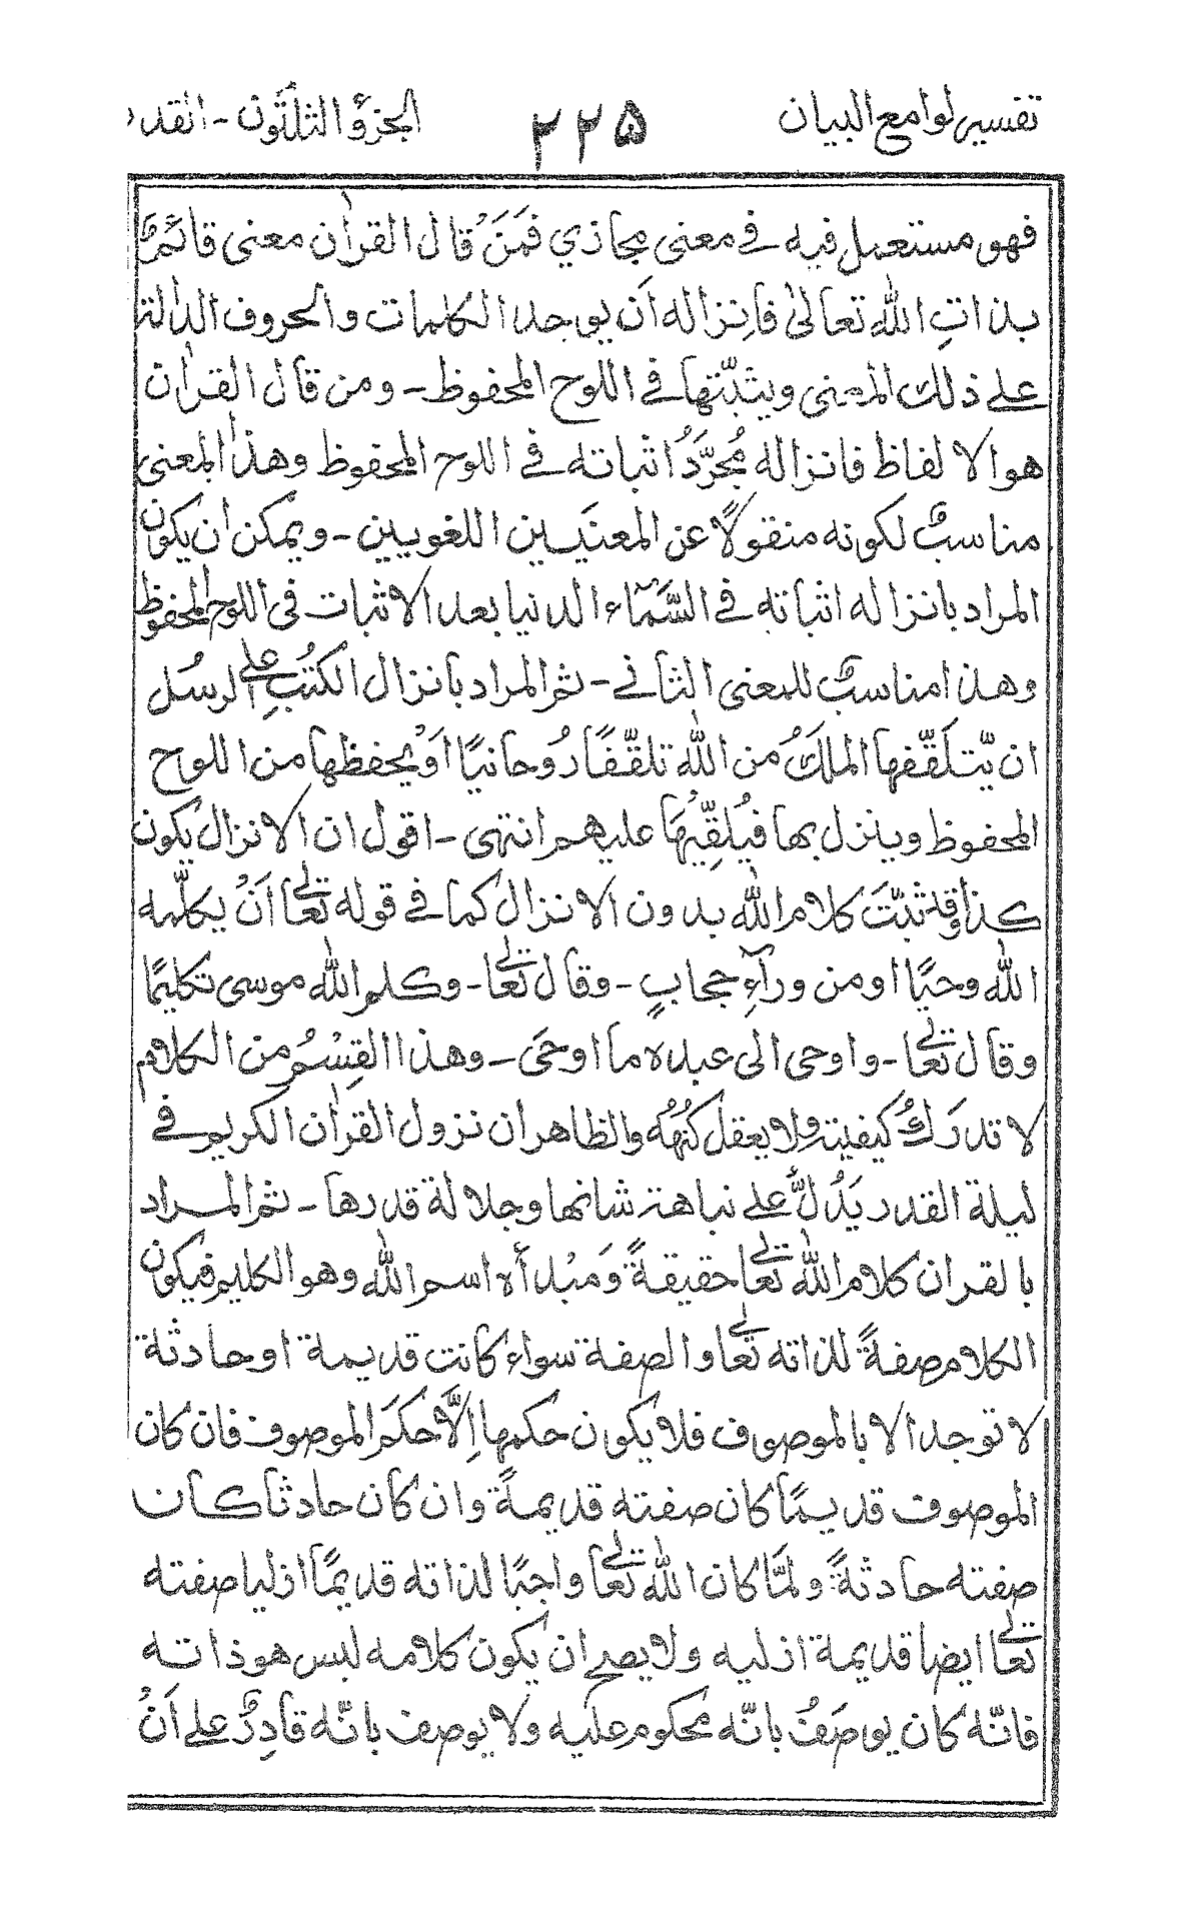 تفسير لوامع البيان ٢٢۵ الجزؤ الثلثون - القدر
فهو مستعمل فيه في معنى مجازي فَمَنْ قال القراٰن معنى قائمٌ
بذاتِ الله تعالىٰ فاِنزاله اَن يوجدا الكلمات والحروف الدالة
على ذلك المعنى ويثبّتها في اللوح المحفوظ - ومن قال القراٰن
هوالالفاظ فانزاله مُجرَّدُ اثباته في اللوح المحفوظ وهذا المعنى
مناسبٌ لكونه منقولًا عن المعنَيَين اللغويين - ويمكن ان يكون
المراد بانزاله اثباته في السَّمَاء الدنيا بعد الاثبات فى اللوح المحفوظ
وهذا مناسبٌ للمعنى الثاني - ثم المراد بانزال الكتُبِ على الرسُل
ان يّتلَقّفها الملَكُ من الله تلقّفًا رُوحانيًا اَوْ يحفظها من اللوح
المحفوظ وينزل بها فيُلقِّيْهَا عليهم انتهى - اقول ان الانزال يكون
كذا وقد ثبّتَ كلام الله بدون الانزال كما في قوله تعالى اَنْ يكلّمه
الله وحيًا او من ورآءِ حجابٍ - وقال تعالى - وكلم الله موسى تكليمًا
وقال تعالى - واوحى الى عبده ما اوحَى - وهذا القِسْمُ من الكلام
لا تدرَكُ كيفيته ولا يعقل كنُهُه والظاهر ان نزول القراٰن الكريم في
ليلة القدر يَدُلُّ على نباهة شانها وجلالة قدرها - ثم المراد
بالقران كلام الله تعالى حقيقةً وَمَبْدأه اسم الله وهو الكليم فيكون
الكلام صفةً لذاته تعالى والصفة سواء كانت قديمة او حادثة
لا توجد الا بالموصوف فلا يكون حكمها اِلَّا حكمَ الموصوف فان كان
الموصوف قديمًا كان صفته قديمةً وان كان حادثا كان
صفته حادثةً ولمَّا كان الله تعالى واجبًا لذاته قديمًا ازليا صفته
تعالى ايضا قديمة ازليه ولا يصح ان يكون كلامه ليس هو ذاته
فانّه كان يوصَفُ بانّه محكوم عليه ولا يوصف بانّه قادِرٌ على اَنْ